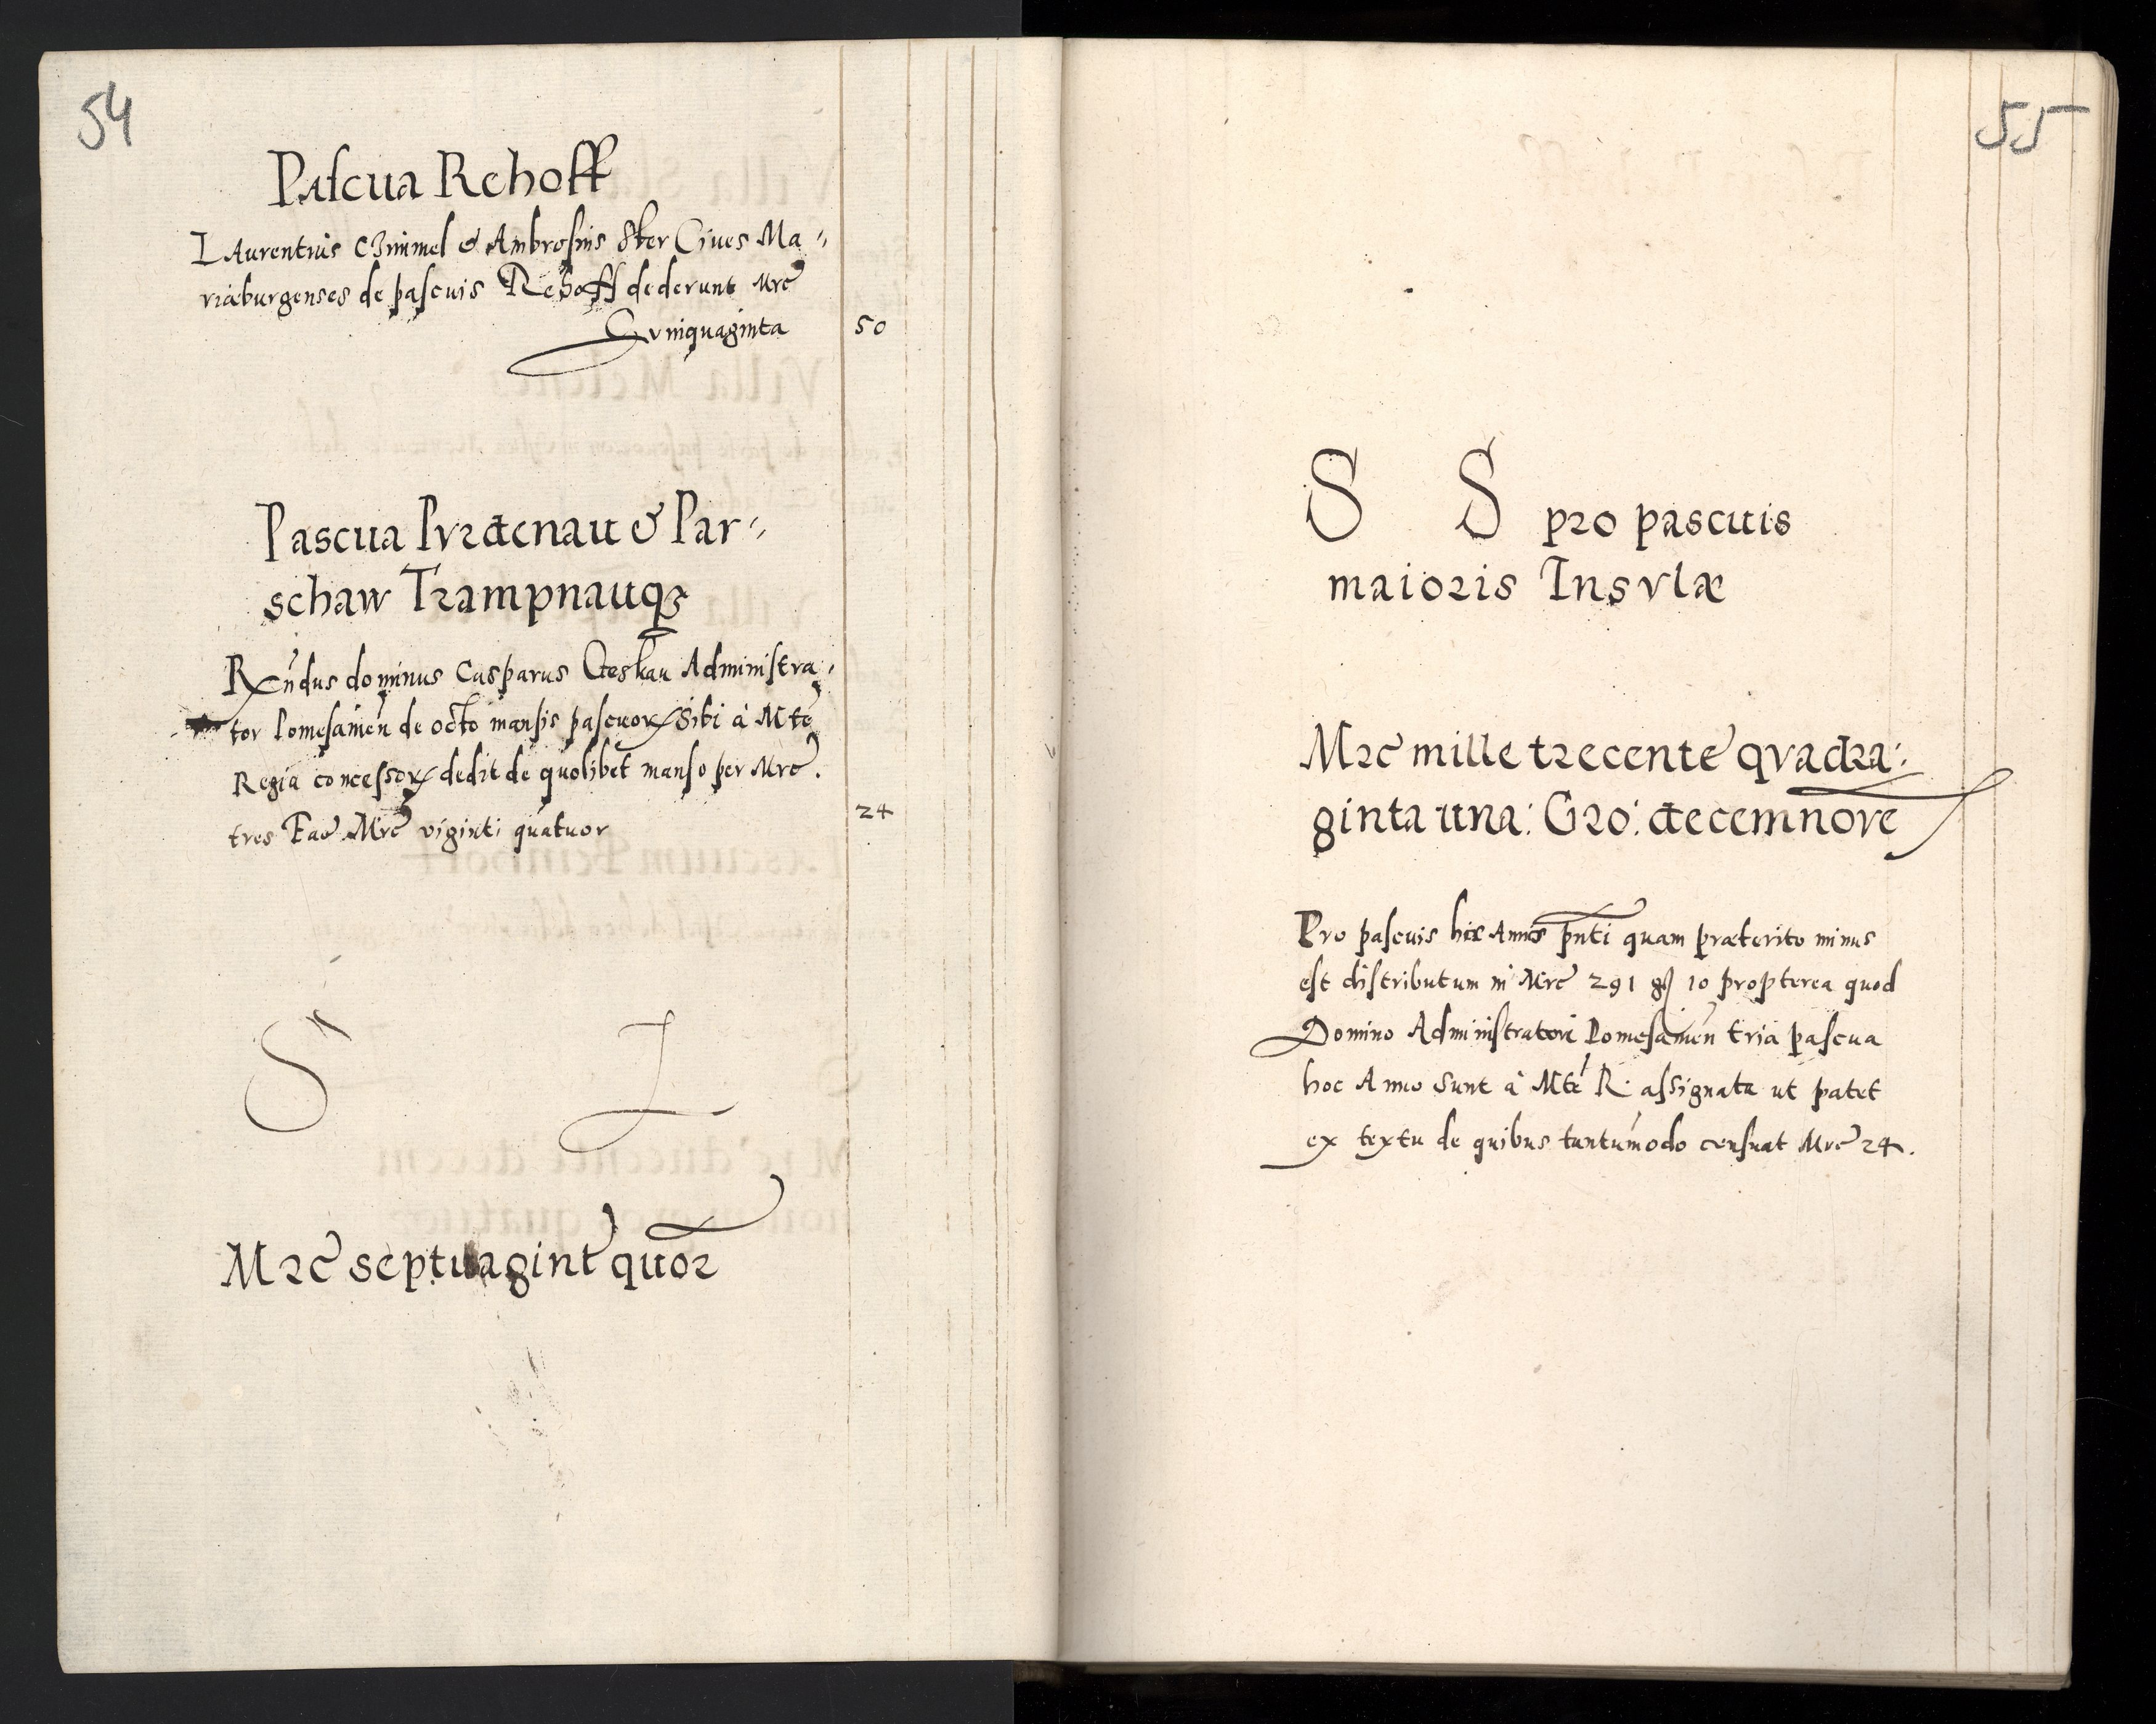 54
Pascua Rehoff
Laurentius Himmel & Ambrosius Cives Ma〃
riaeburgenses de pascuis Rehoff dederunt Mrc̃
Quinquaginta 50
Pascua Prudenau & Par〃
schaw Trampnauqꝫ
Rx̃ndus dominus Casparus Geskau Administra,
tor Pomesanien̄ de octo mansis pascuoꝝ Sibi à Mte
Regia concessoꝝ dedit de quolibet manso per Mrc̃.
tres Fac̃ Mrc̃ viginti quatuor 24
S L
Mrc̃ septuagint quor
55
S S pro pascuis
maioris Insulæ
Mrc̃ mille trecente quadra:
ginta una: Gro: decemnove
Pro pascuis hic Annō pn̄ti quam præterito minus
est distributum in Mrc̃ 291 gſ 10 propterea quod
Domino Administratori Pomesanien̄ tria pascua
hoc Anno sunt à Mte R. assignata ut patet
ex textu de quibus tantum̄odo censuat Mrc̃ 24.